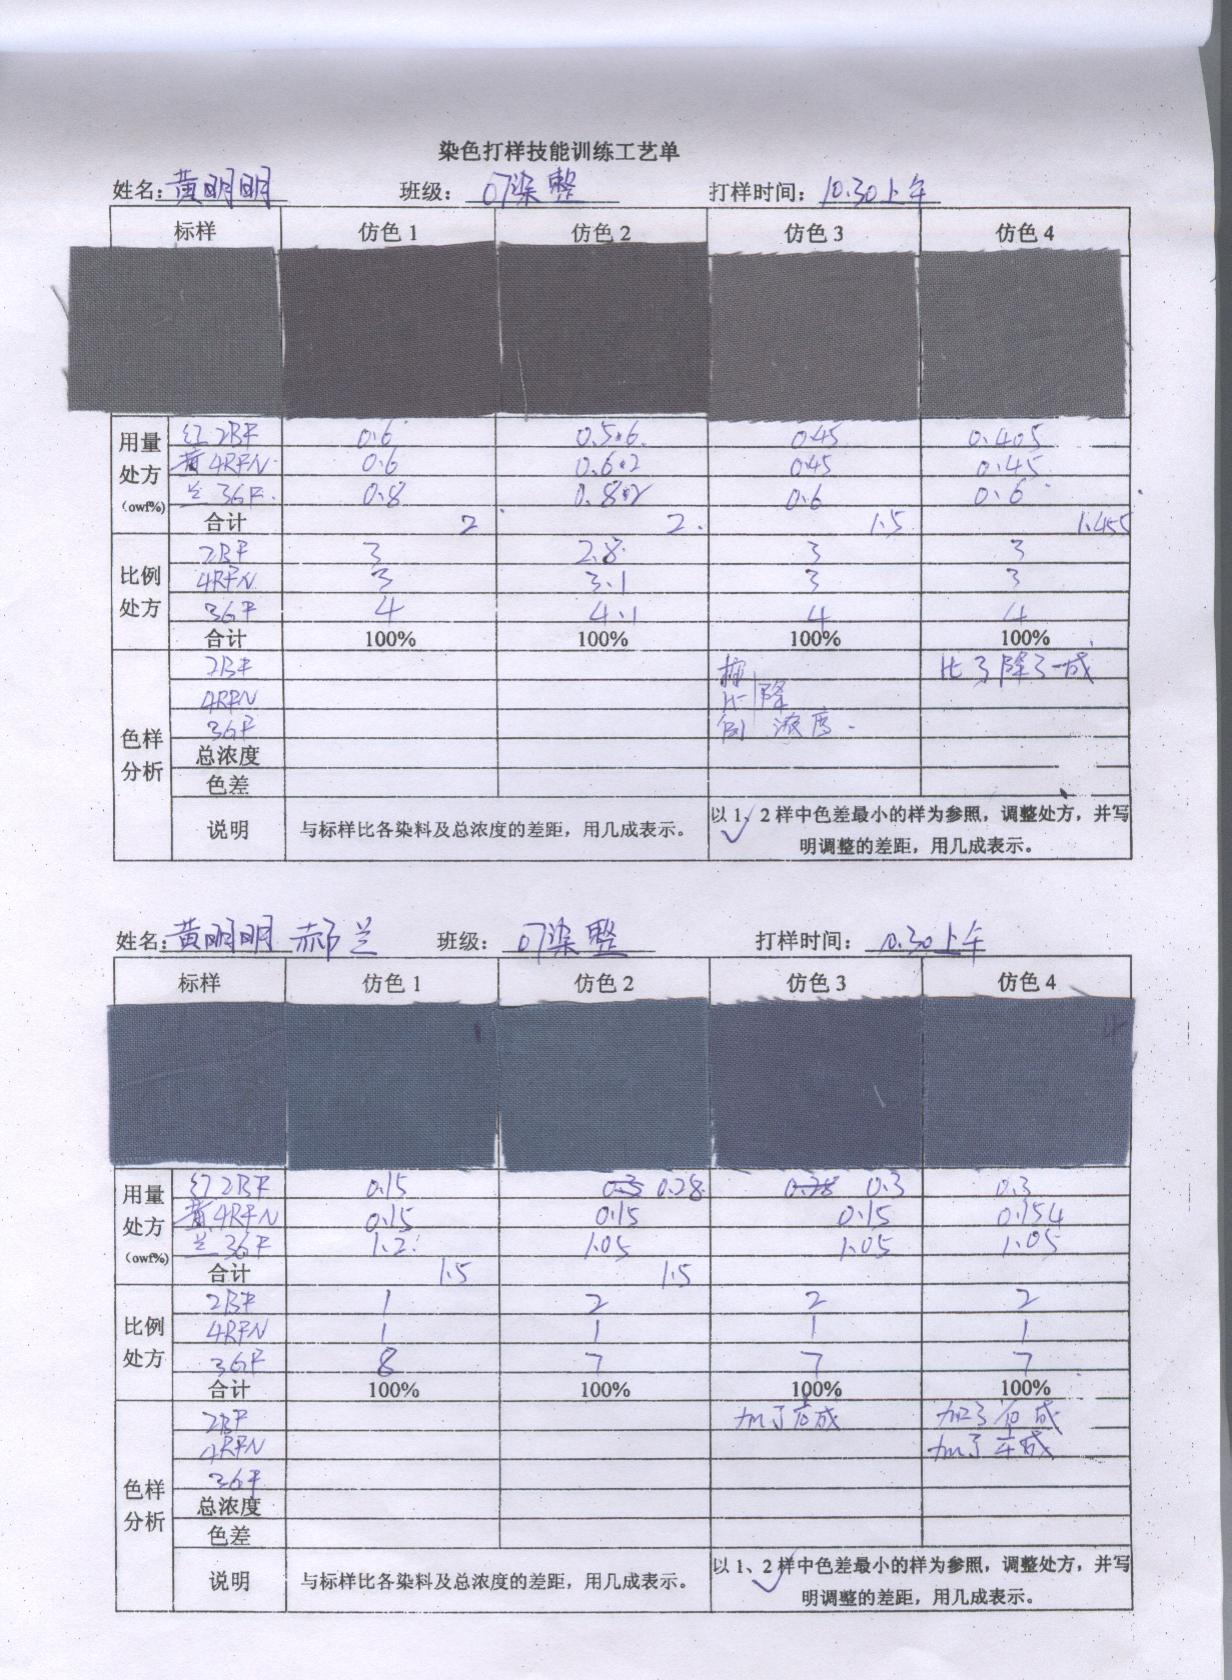 染色打样技能训练工艺单
姓名: 黄明明 班级: 07染整 打样时间: 10.30上午
标样 仿色1 仿色2 仿色3 仿色4
用量处方(owf%)
红2BF 0.6 0.5 6 0.45 0.405
黄4RFN 0.6 0.6 2 0.45 0.45
兰36F 0.8 0.8 2 0.6 0.6
合计 2 2 1.5 1.455
比例处方
2BF 3 2.8 3 3
4RFN 3 3.1 3 3
36F 4 4.1 4 4
合计 100% 100% 100% 100%
色样分析
2BF 按 比了降了一成
4RFN 比 降
36F 例 浓度.
总浓度
色差
说明 与标样比各染料及总浓度的差距，用几成表示。 以1、2样中色差最小的样为参照，调整处方，并写
明调整的差距，用几成表示。
姓名: 黄明明 郝兰 班级: 07染整 打样时间: 10.30上午
标样 仿色1 仿色2 仿色3 仿色4
用量处方(owf%)
红2BF 0.15 0.3 0.28 0.28 0.3 0.3
黄4RFN 0.15 0.15 0.15 0.154
兰36F 1.2 1.05 1.05 1.05
合计 1.5 1.5
比例处方
2BF 1 2 2 2
4RFN 1 1 1 1
36F 8 7 7 7
合计 100% 100% 100% 100%
色样分析
2BF 加了 成 加了 成
4RFN 加了半成
36F
总浓度
色差
说明 与标样比各染料及总浓度的差距，用几成表示。 以1、2样中色差最小的样为参照，调整处方，并写
明调整的差距，用几成表示。